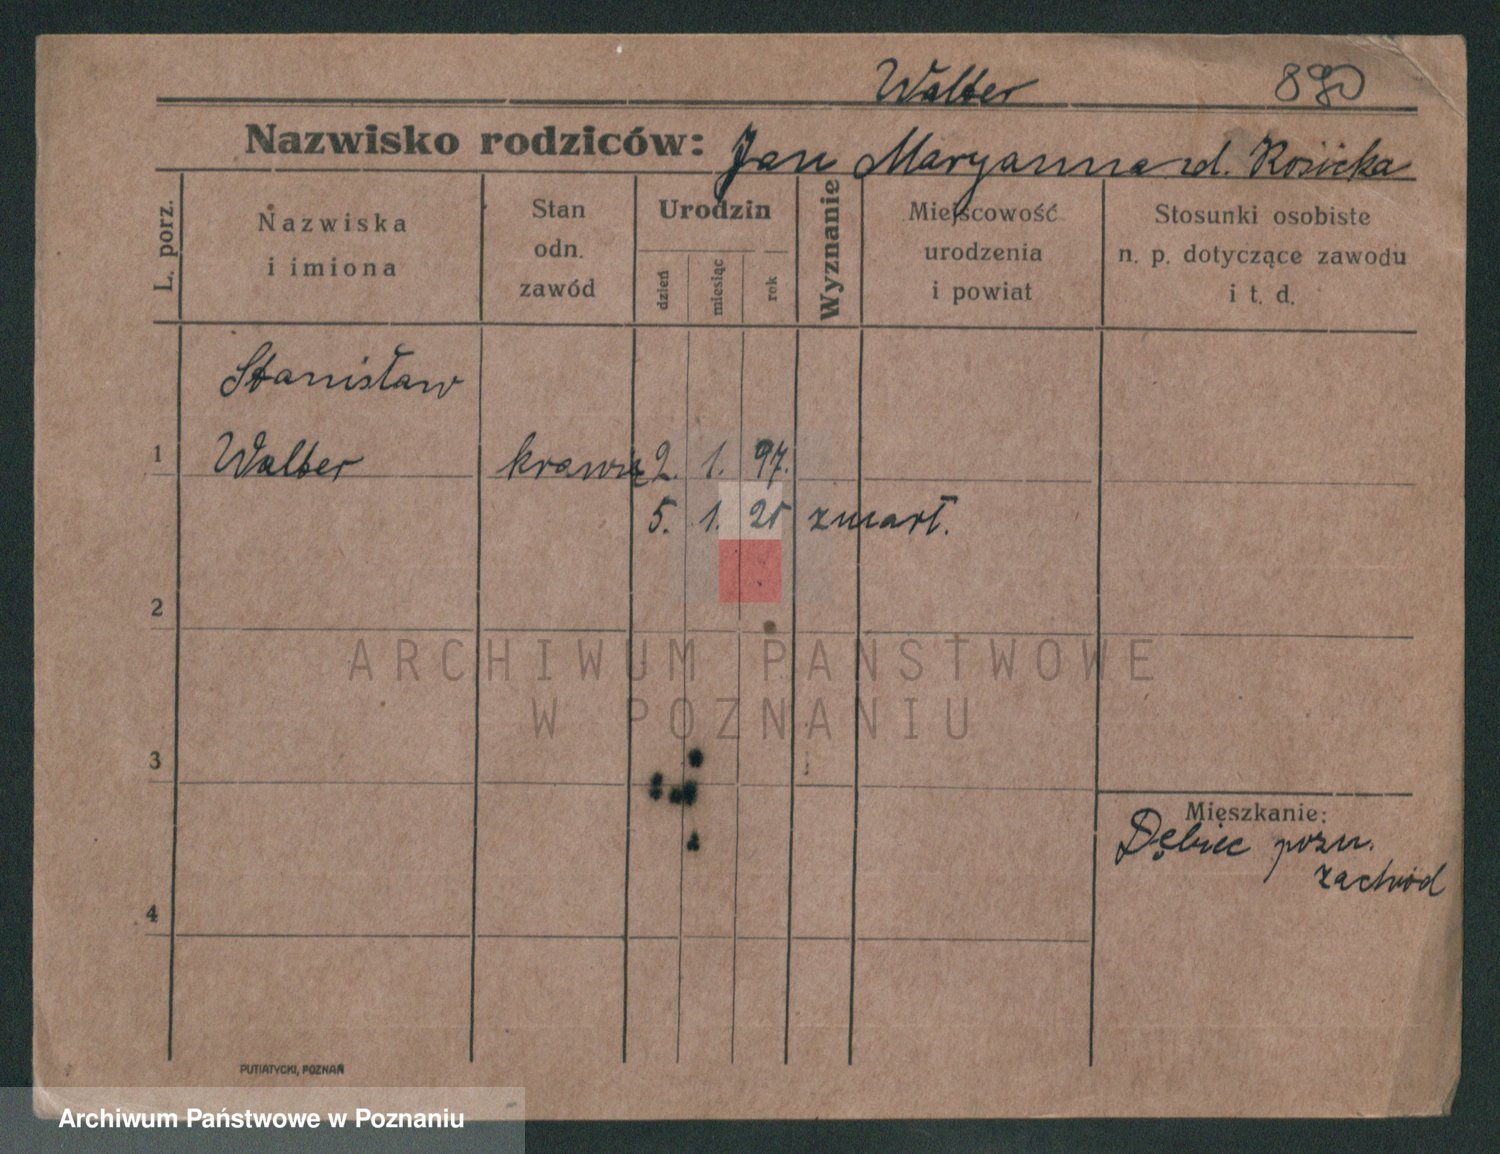 Walter 890
Nazwisko rodziców: Jan Maryanna zd. Rosicka
L. porz.
Nazwiska
i imiona
Stan
odn.
zawód
Urodzin
dzień
miesiąc
rok
Wyznanie
Miejscowość
urodzenia
i powiat
Stosunki osobiste
n. p. dotyczące zawodu
i t. d.
Stanisław
1 Walter krawiec 2. 1. 97.
5. 1. 20 zmarł.
2
ARCHIWUM PAŃSTWOWE
W POZNANIU
3
Mieszkanie:
Dębiec pozn.
zachód
4
PUTIATYCKI, POZNAŃ
Archiwum Państwowe w Poznaniu